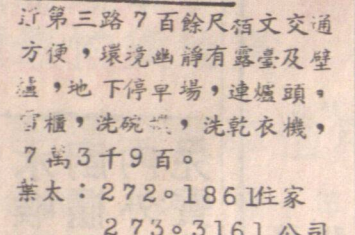 近第三路7百餘尺栢文交通
方便,環境幽靜有露臺及壁
爐,地下停車場,連爐頭,
雪櫃,洗碗機,洗乾衣機,
7萬3千9百。
葉太:272。1861住家
273。3161公司